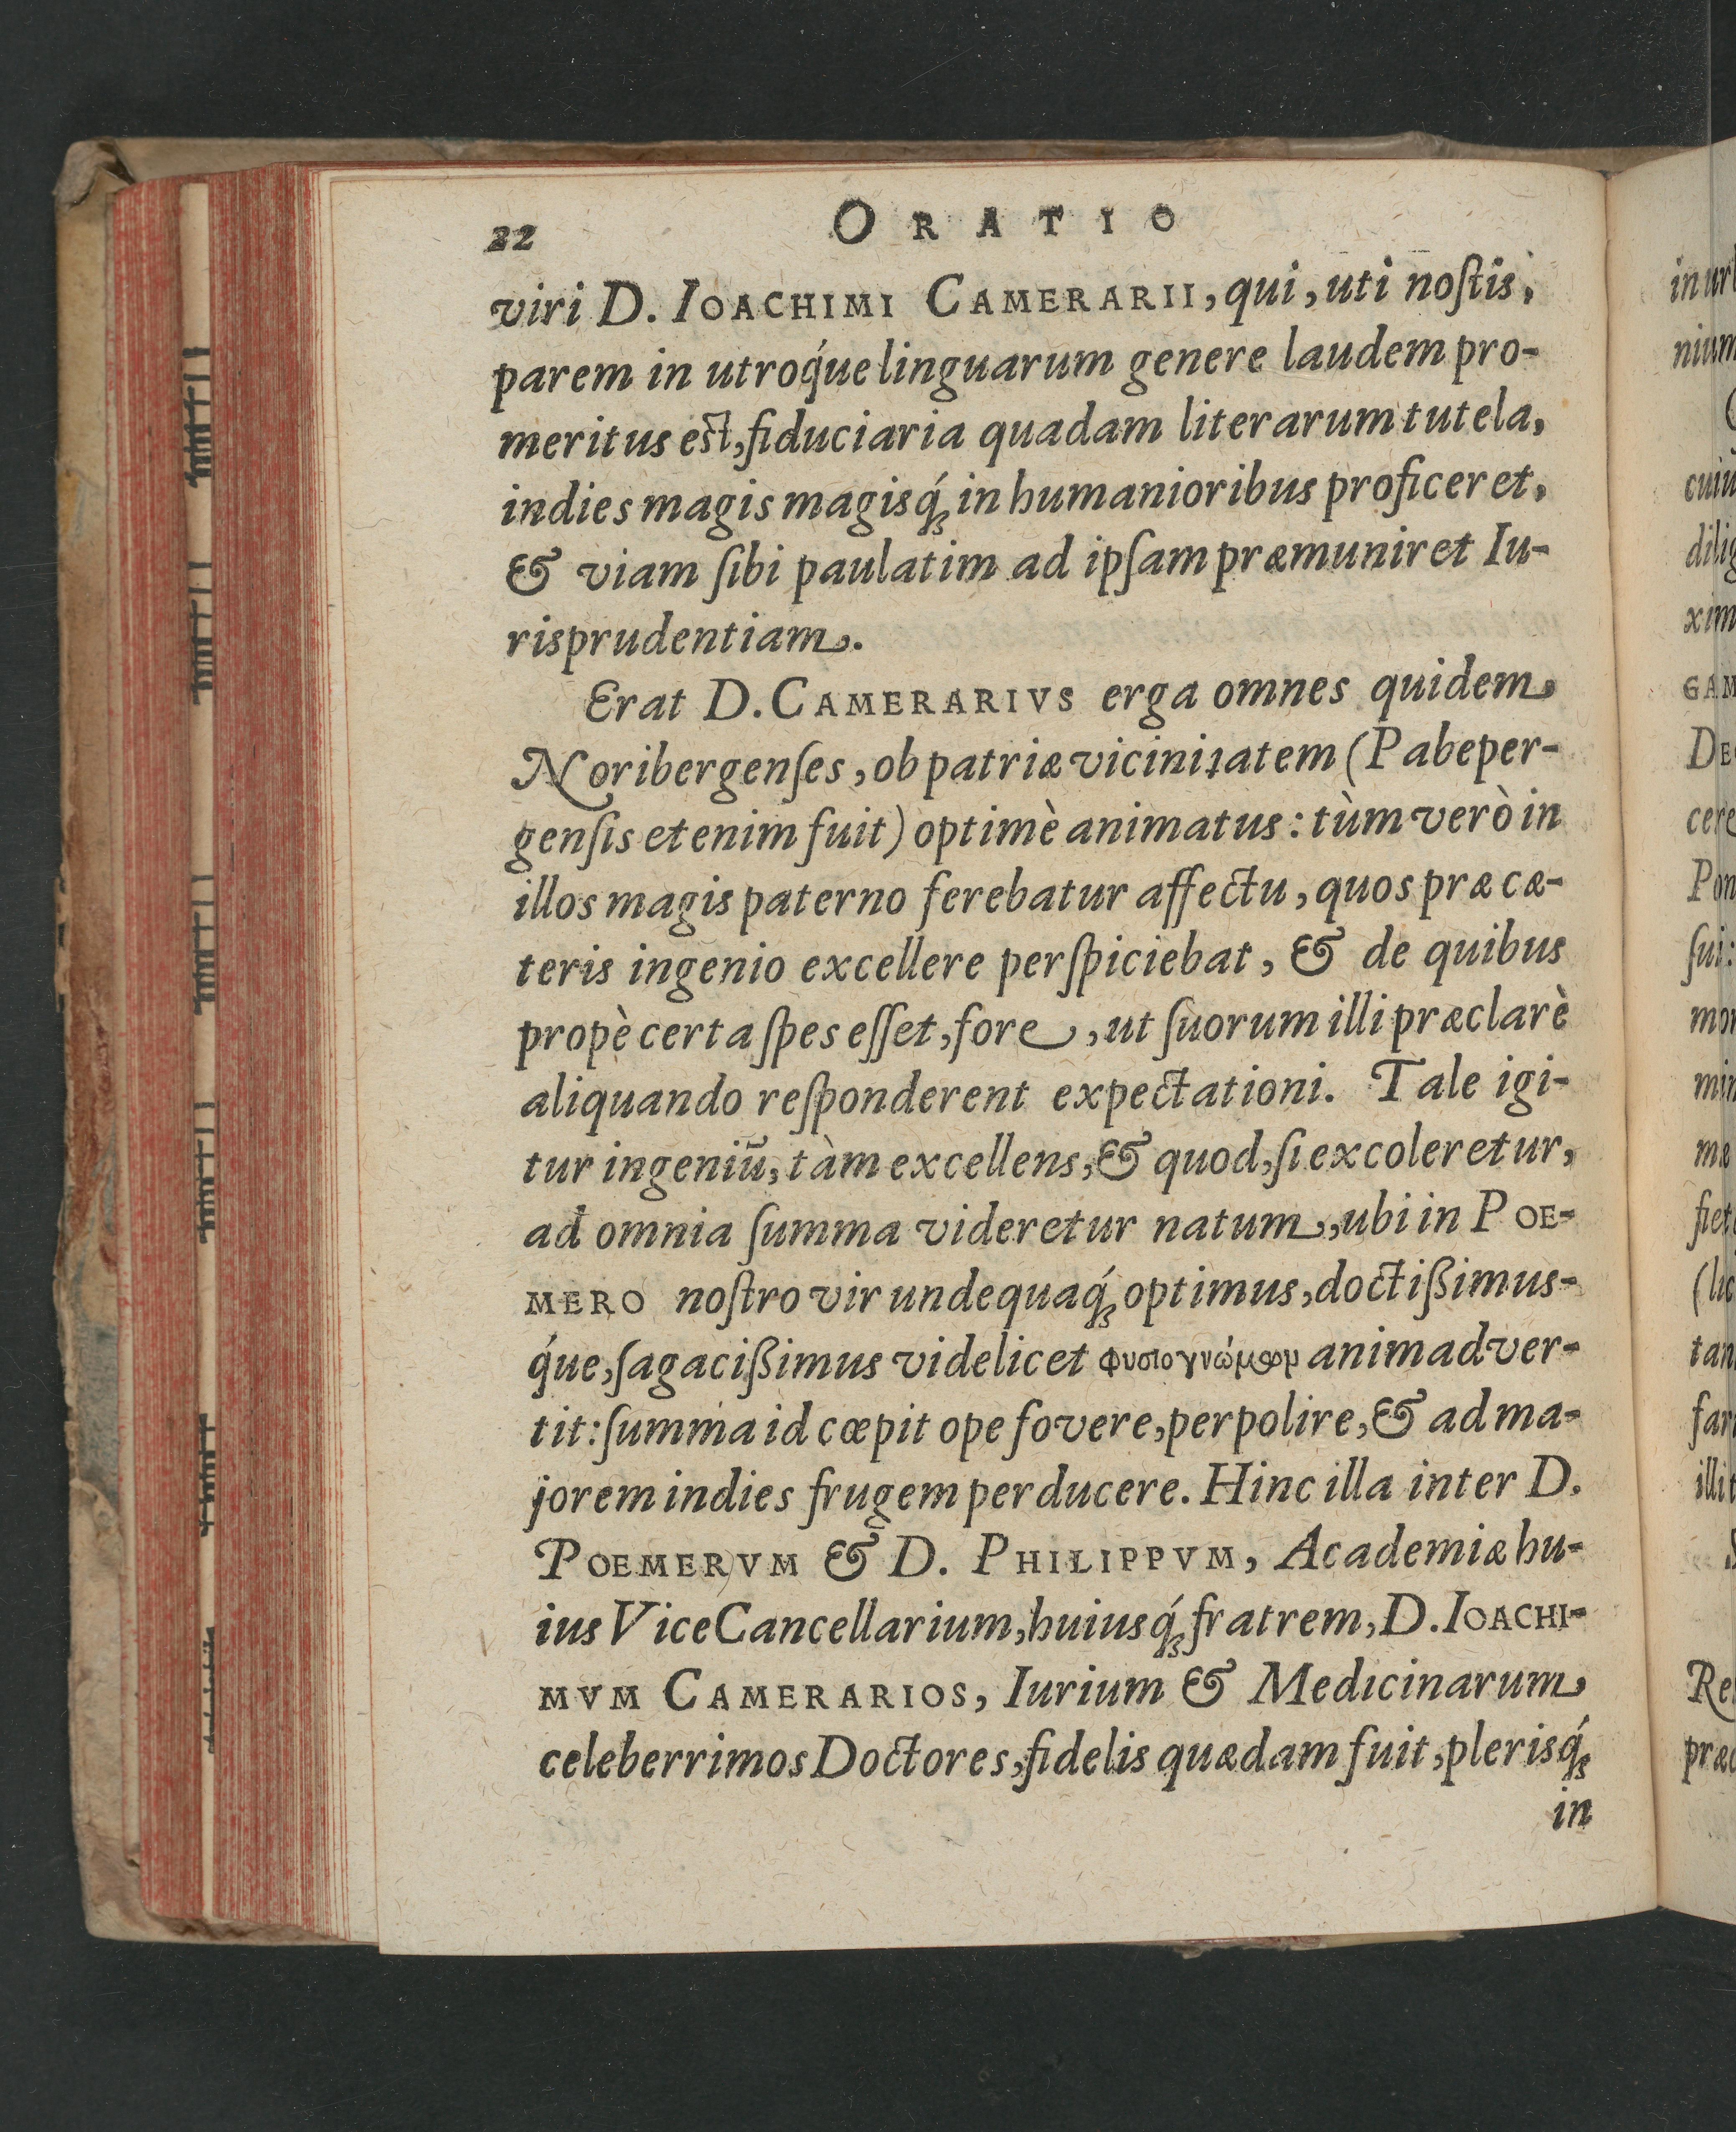 22 ORATIO
viri D. IOACHIMI CAMERARII, qui, uti noſtis,
parem in utroq́ue linguarum genere laudem pro-
meritus eſt, fiduciaria quadam literarum tutela,
indies magis magisq́ʒ in humanioribus proficeret,
& viam ſibi paulatim ad ipſam præmuniret Iu-
risprudentiam.
Erat D. CAMERARIVS erga omnes quidem
Noribergenſes, ob patriæ vicinitatem (Pabeper-
genſis etenim fuit) optimè animatus: tùm verò in
illos magis paterno ferebatur affectu, quos præ cæ-
teris ingenio excellere perſpiciebat, & de quibus
propè certa ſpes eſſet, fore, ut ſuorum illi præclarè
aliquando reſponderent expectationi. Tale igi-
tur ingeniū, tàm excellens, & quod, ſi excoleretur,
ad omnia ſumma videretur natum, ubi in POE-
MERO noſtro vir undequaq́ʒ optimus, doctißimus-
q́ue, ſagacißimus videlicet animadver-
tit: ſumma id cœpit ope fovere, perpolire, & ad ma-
jorem indies frugem perducere. Hinc illa inter D.
POEMERVM & D. PHILIPPVM, Academiæ hu-
ius ViceCancellarium, huiusq́ʒ fratrem, D. IOACHI-
MVM CAMERARIOS, Iurium & Medicinarum
celeberrimos Doctores, fidelis quædam fuit, plerisq́ʒ
in